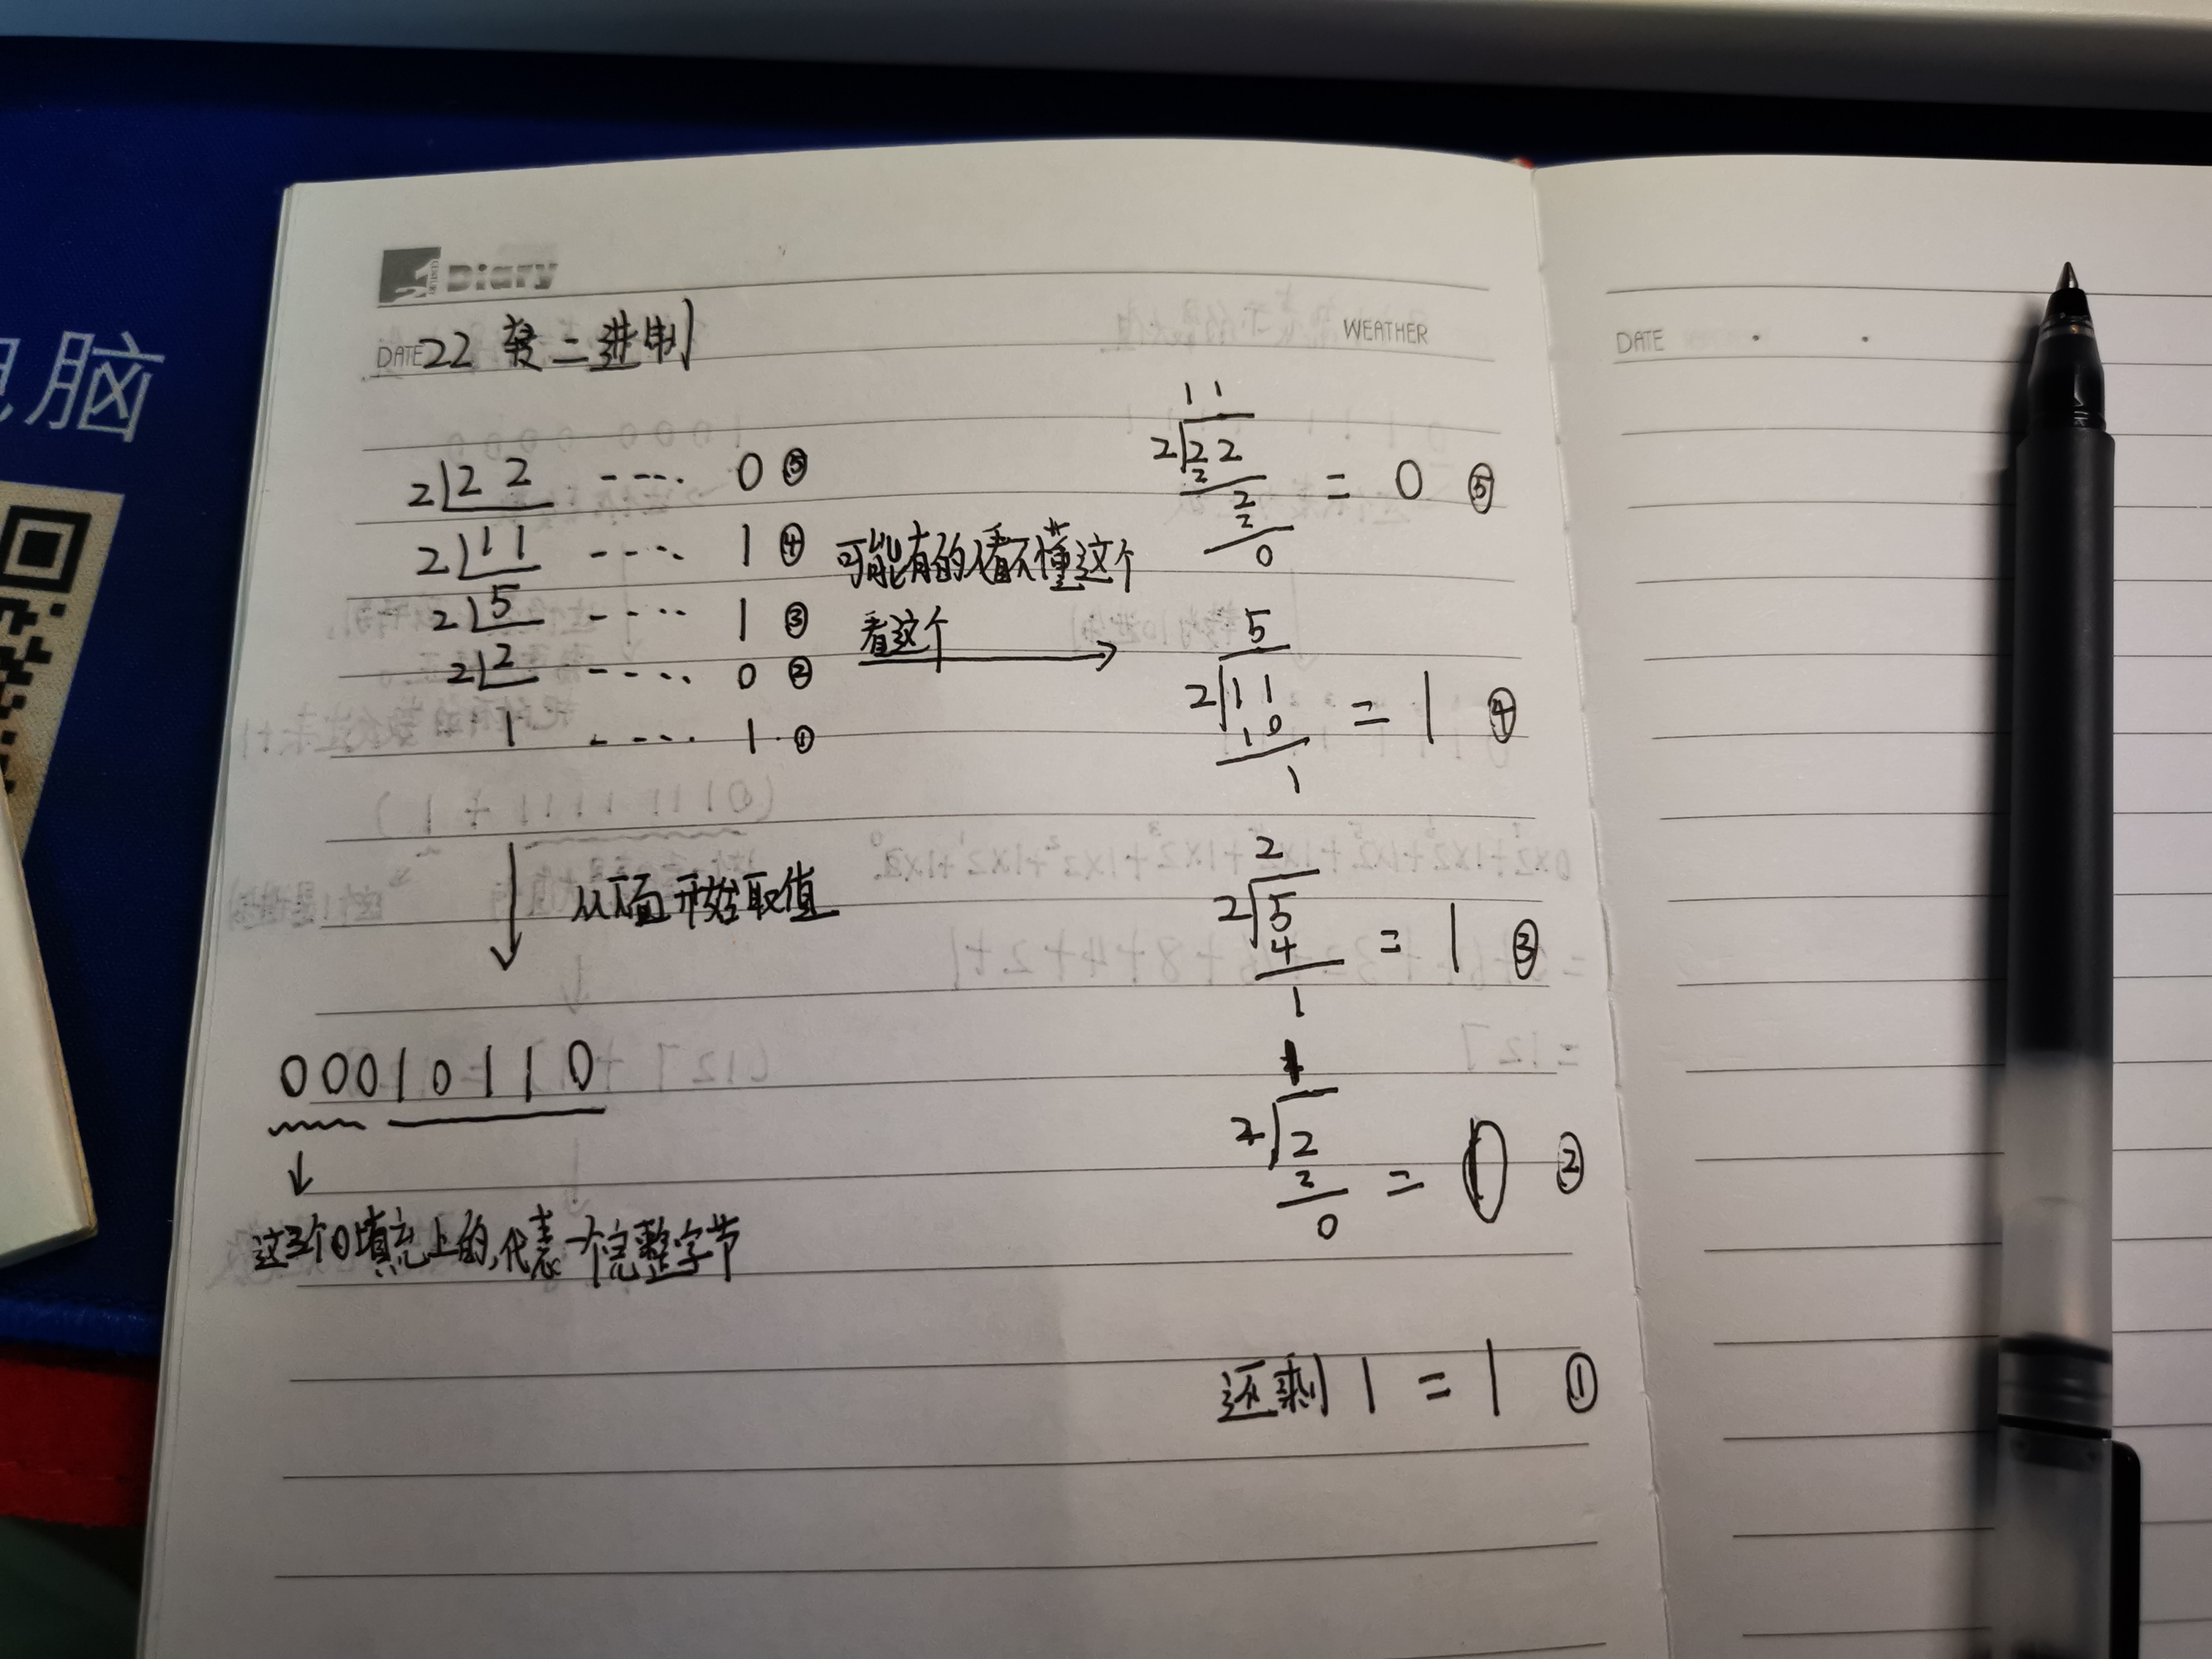 Diary
DATE 22 转二进制
WEATHER
2 22 ---- 0 ⑤
2 11 ---- 1 ④
2 5 ---- 1 ③
2 2 ---- 0 ②
1 ---- 1 ①
可能有的人看不懂这个
看这个
从下面开始取值
00010110
这三个0填充上的,代表一个完整字节
11
2 22 = 0 ⑤
2
2
2
0
5
2 11 = 1 ④
10
1
2
2 5 = 1 ③
4
1
1
2 2 = 0 ②
2
0
还剩 1 = 1 ①
DATE
脑